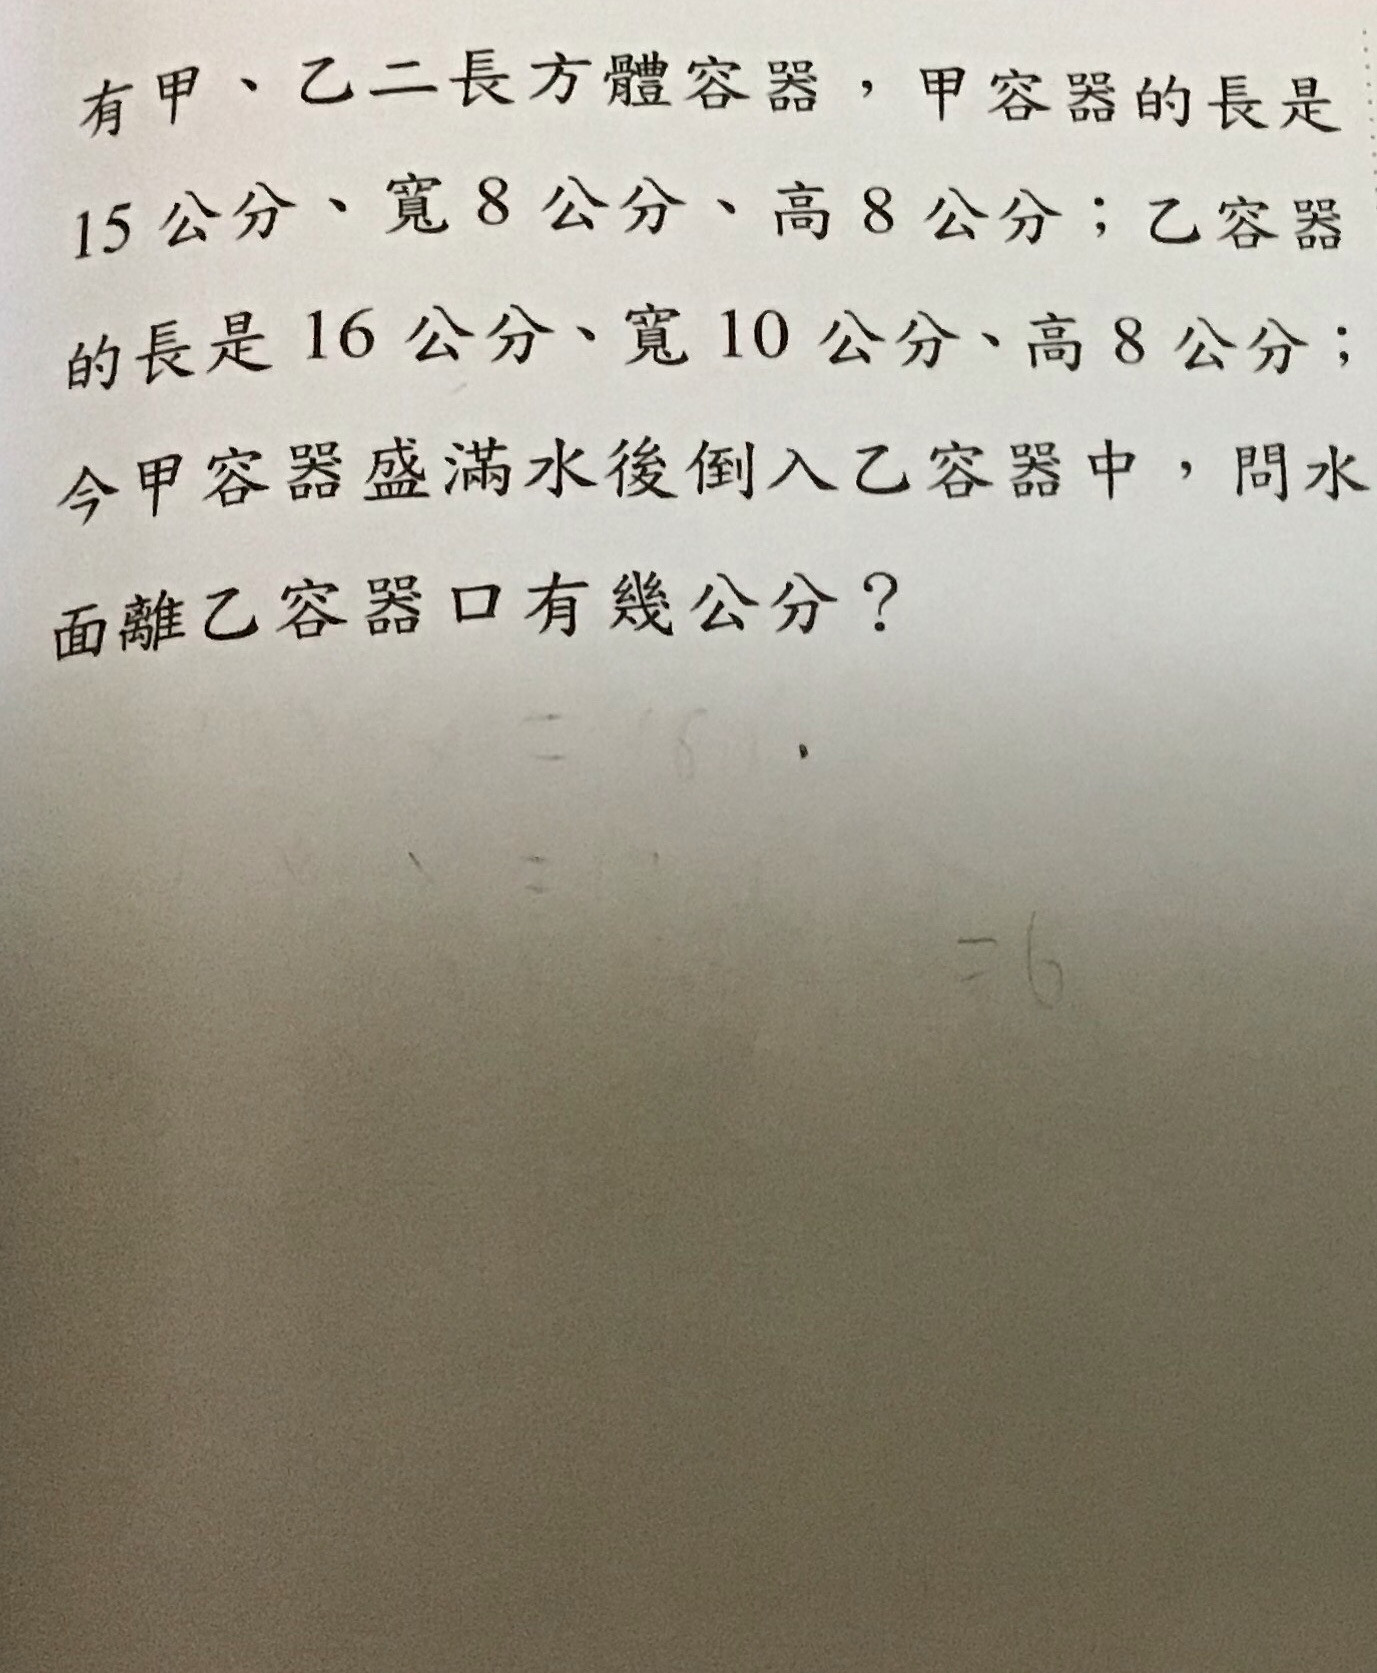 有甲、乙二長方體容器，甲容器的長是
15公分、寬8公分、高8公分；乙容器
的長是16公分、寬10公分、高8公分；
今甲容器盛滿水後倒入乙容器中，問水
面離乙容器口有幾公分？
=6